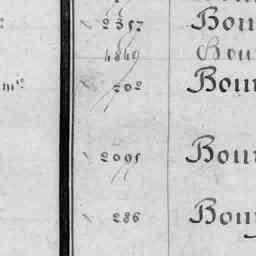 2357 Bou
4849 Bou
m.º 202 Bou
2095 Bou
286 Bou